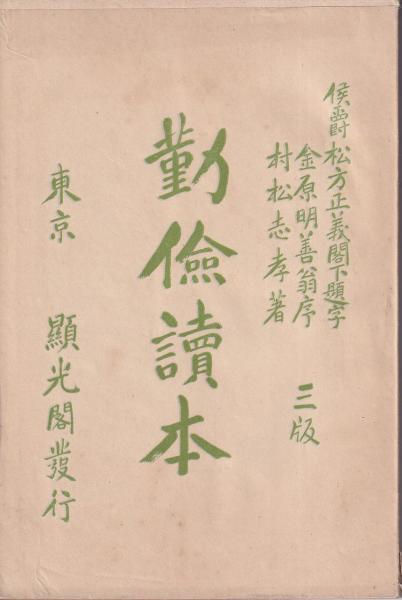 侯爵松方正義閣下題字
金原明善翁序
村松志孝著
三版
勤儉讀本
東京 顯光閣發行